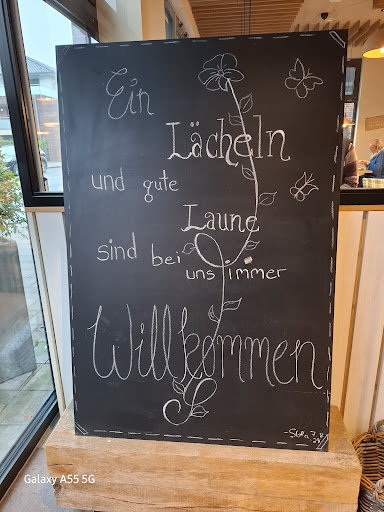 Ein
Lächeln
und gute
Laune
sind bei
uns immer
Willkommen
Galaxy A55 5G